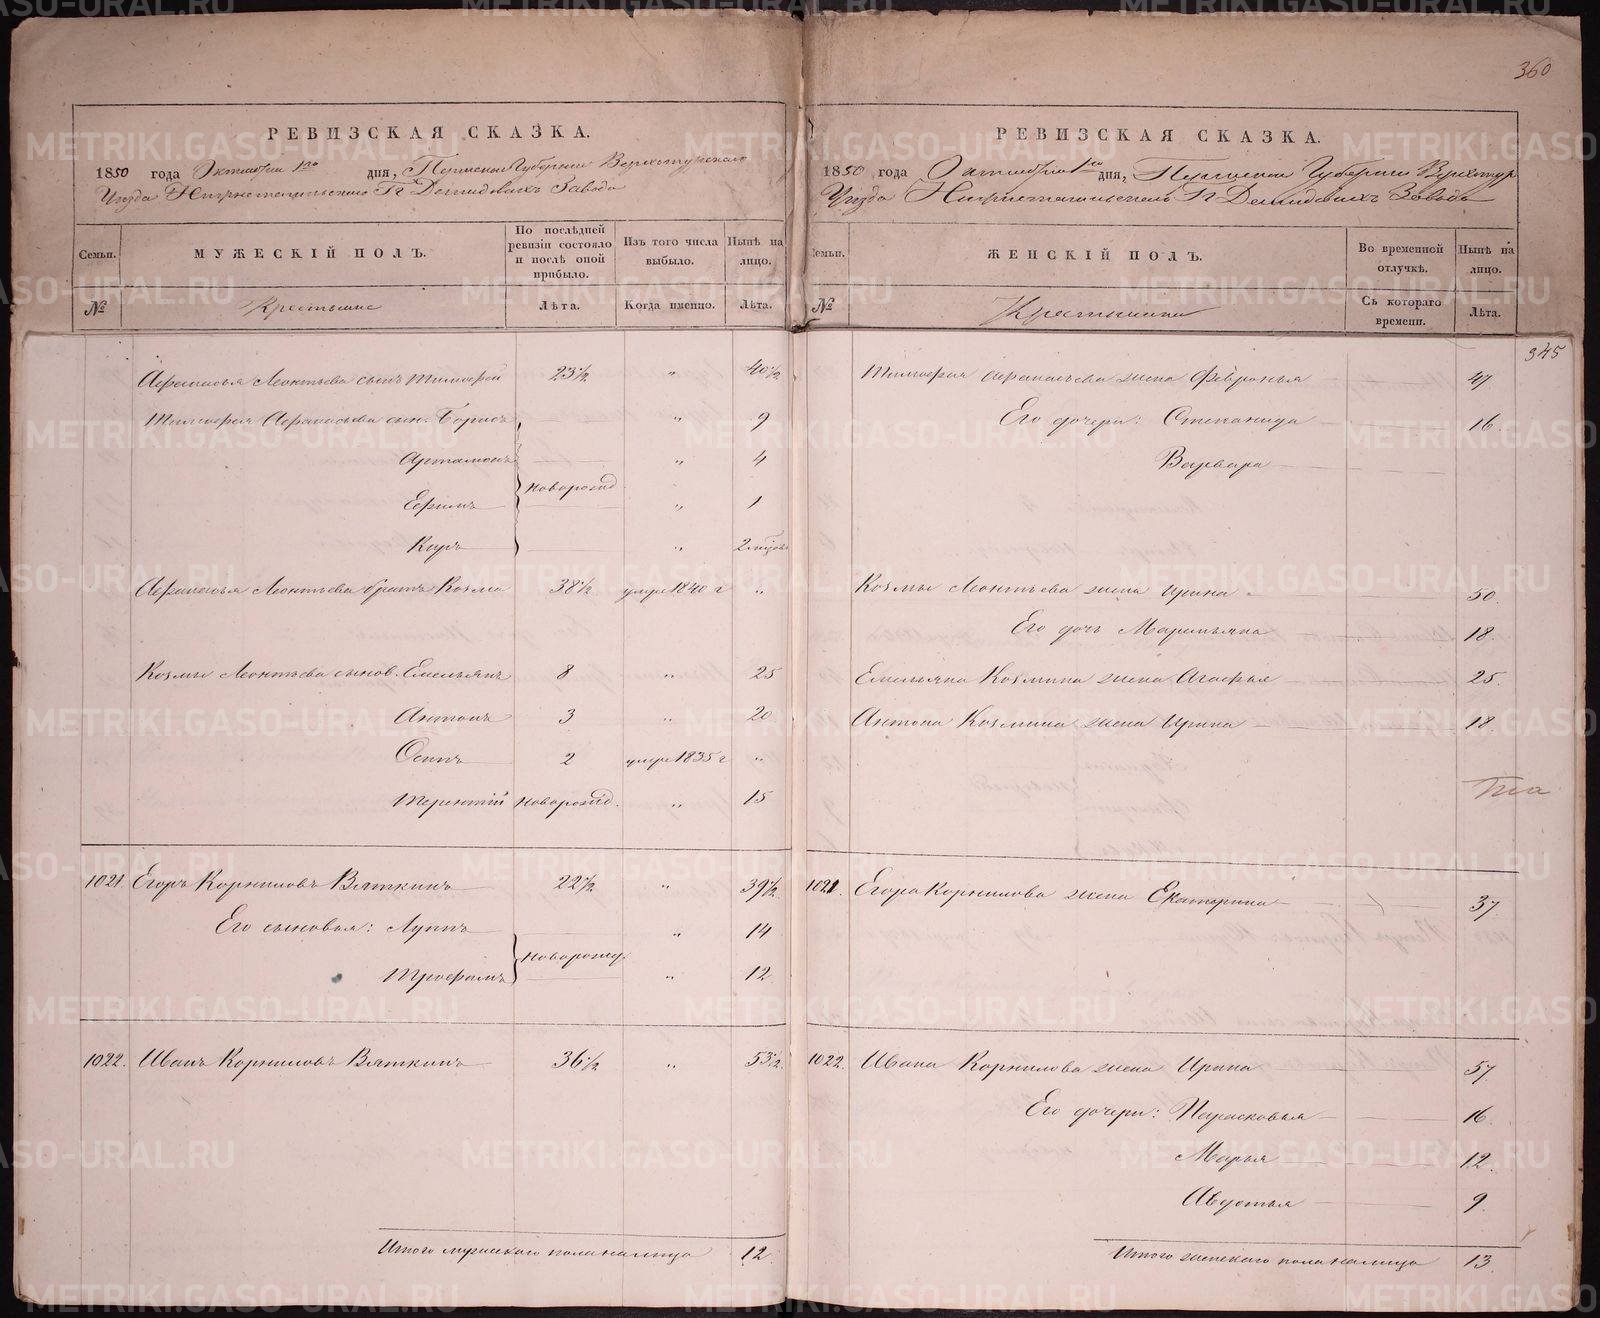 360
РЕВИЗСКАЯ СКАЗКА.
1850 года Октября 1го дня, Пермской Губернии Верхотурскаго
Уезда Нижнетагильскаго Гг Демидовыхъ Завода
Семьи.
МУЖЕСКІЙ ПОЛЪ.
По послѣдней ревизіи состояло и послѣ оной прибыло.
Изъ того числа выбыло.
Нынѣ на лицо.
№
Крестьяне
Лѣта.
Когда именно.
Лѣта.
Афанасья Леонтьева сынъ Тимофей 23½ " 40½
Тимофея Афанасьева сын. Борисъ " 9
Артамонъ " 4
новорожд.
Ефимъ " 1
Киръ " 2 мѣсов
Афанасья Леонтьева братъ Козма 38½ умре 1840 г "
Козмы Леонтьева сынов. Емельянъ 8 " 25
Антонъ 3 " 20
Осипъ 2 умре 1835 г "
Терентій новорожд. " 15
1021. Егоръ Корниловъ Вяткинъ 22½ " 39½
Его сыновья: Луппъ " 14
новорожд.
Трофимъ " 12
1022. Иванъ Корниловъ Вяткинъ 36½ " 53½
Итого мужескаго пола на лицо 12
РЕВИЗСКАЯ СКАЗКА.
1850 года Октября 1го дня, Пермской Губерніи Верхотур
Уезда Нижнетагильскаго Гг Демидовыхъ Завода
Семьи.
ЖЕНСКІЙ ПОЛЪ.
Во временной отлучкѣ.
Нынѣ на лицо.
№
Крестьянки
Съ котораго времени.
Лѣта.
345
Тимофея Афанасьева жена Февронья 47
Его дочери: Степанида 16
Варвара
Козмы Леонтьева жена Ирина 50
Его дочь Маремьяна 18.
Емельяна Козмина жена Агафья 25.
Антона Козмина жена Ирина 18.
1021. Егора Корнилова жена Екатерина 37
1022. Ивана Корнилова жена Ирина 57
Его дочери: Парасковья 16
Марья 12
Авдотья 9
Итого женскаго пола на лицо 13
METRIKI.GASO-URAL.RU